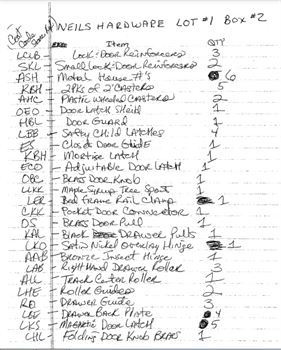 NEILS HARDWARE LOT #1 BOX #2
Cost Code
Item QTY
LCLB Lock-Door Reinforcers 3
SKL Small Lock-Door Reinforcers 2
ASH Metal House #'s 6
KBH 2PKs of 2" Casters 5
AHC Plastic Wheeled Casters 2
OEO Door Latch Shield 1
HBL Door Guard 1
LBB Safty Child Latches 4
ES Closet Door Guide 1
KBH Mortise Latch 1
ECO Adjuitable Door Latch 1
CBC Brass Door Knob 1
LKK Maple Syrup Tree Spout 1
LER Bed Frame Rail Clamp 1
CKK Pocket Door Connector 1
OS Brass Door Pull 1
KAL Black Drawer Pulls 1
LKO Satin Nickel Overlay Hinge 1
AAB Bronze Insert Hinge 1
LAB Right Hand Drawer Roller 3
ALL Track Center Roller 1
LHE Roller Guides 2
RO Drawer Guide 3
LBE Drawer Back Plate 4
LKS Magnetic Door Latch 5
CHL Folding Door Knob Brass 1